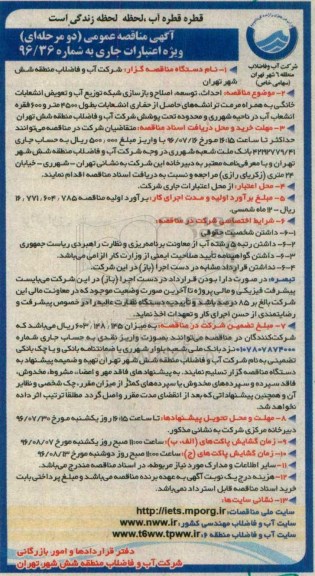 قطره قطره آب ،لحظه لحظه زندگی است
آگهی مناقصه عمومی (دو مرحله‌ای)
ویژه اعتبارات جاری به شماره ۹۶/۳۶
شرکت آب و فاضلاب
منطقه ۶ شهر تهران
(سهامی خاص)
۱- نام دستگاه مناقصه گزار: شرکت آب و فاضلاب منطقه شش
شهر تهران
۲- موضوع مناقصه: احداث، توسعه، اصلاح و بازسازی شبکه توزیع آب و تعویض انشعابات
خانگی به همراه مرمت ترانشه‌های حاصل از حفاری انشعابات بطول ۲۵۰۰ متر و ۶۰۰ فقره
انشعاب آب در ناحیه شهرری و محدوده تحت پوشش شرکت آب و فاضلاب منطقه شش تهران
۳- مهلت خرید و محل دریافت اسناد مناقصه: متقاضیان شرکت در مناقصه می‌توانند
حداکثر تا ساعت ۱۶:۱۵ مورخ ۹۶/۷/۱۶ با واریز مبلغ ۵۰۰،۰۰۰ ریال به حساب جاری
بانک ملت شعبه شهرری در وجه شرکت آب و فاضلاب منطقه شش شهر
تهران و با معرفی‌نامه معتبر به دبیرخانه این شرکت به نشانی تهران – شهرری – خیابان
۲۴ متری (زکریای رازی) مراجعه و نسبت به دریافت اسناد مناقصه اقدام نمایند.
۴- محل اعتبار: از محل اعتبارات جاری شرکت.
۵- مبلغ برآورد اولیه و مدت اجرای کار: برآورد اولیه مناقصه ۱۶،۷۷۱،۶۰۴،۷۸۵
ریال – ۱۲ ماه شمسی.
۶- شرایط اختصاصی شرکت در مناقصه:
۶-۱- داشتن شخصیت حقوقی
۶-۲- داشتن رتبه ۵ رشته آب از معاونت برنامه‌ریزی و نظارت راهبردی ریاست جمهوری
۶-۳- داشتن گواهینامه تایید صلاحیت ایمنی از وزارت کار الزامی می‌باشد.
۶-۴- نداشتن قرارداد مشابه در دست اجرا (باز) در این شرکت.
تبصره: در صورت دارا بودن قرارداد در دست اجرا (باز) در این شرکت می‌بایست
پیشرفت فیزیکی و مالی پروژه تا آخرین صورت وضعیت موجود که در معاونت مالی این
شرکت بالغ بر ۸۵ درصد باشد و تاییدیه دستگاه نظارت عالیه را در خصوص پیشرفت و
رضایتمندی از حسن اجرای کار و تعهدات اخذ نماید.
۷- مبلغ تضمین شرکت در مناقصه: به میزان ۶۰۳،۱۴۸،۱۳۵ ریال می‌باشد که
شرکت‌کنندگان در مناقصه می‌توانند بصورت واریز نقدی به حساب جاری شماره
نزد بانک ملی شعبه بلوار شهرری یا ضمانتنامه بانکی و یا چک بانکی
تضمینی به نام شرکت آب و فاضلاب منطقه شش شهر تهران تهیه و ضمیمه پیشنهاد به
دستگاه مناقصه گزار تسلیم نمایند. به پیشنهادهای فاقد مهر و امضاء، مشروط، مخدوش،
فاقد سپرده و سپرده‌های مخدوش یا سپرده‌های کمتر از میزان مقرر، چک شخصی و نظایر
آن و همچنین پیشنهاداتی که بعد از انقضای مدت مقرر واصل گردد مطلقا ترتیب اثر داده
نخواهد شد.
۸- مهلت و محل تحویل پیشنهادها: تا ساعت ۱۶:۱۵ روز یکشنبه مورخ ۹۶/۰۷/۳۰
دبیرخانه مرکزی شرکت به نشانی مذکور.
۹- زمان گشایش پاکت‌های (الف، ب): ساعت ۱۱:۰۰ صبح روز یکشنبه مورخ ۹۶/۰۸/۰۷
۱۰- زمان گشایش پاکت‌های (ج): ساعت ۱۱:۰۰ صبح روز دوشنبه مورخ
۱۱- سایر اطلاعات و مدارک مورد نیاز مربوطه، در اسناد مناقصه مندرج می‌باشد.
۱۲- هزینه درج یک نوبت آگهی به عهده برنده مناقصه می‌باشد و مبلغ پرداختی بابت
خرید اسناد مناقصه قابل استرداد نمی‌باشد.
۱۳- نشانی سایت‌ها:
سایت ملی مناقصات: http://iets.mporg.ir
سایت آب و فاضلاب مهندسی کشور: www.nww.ir
سایت آب و فاضلاب منطقه ۶: www.t6ww.tpww.ir
دفتر قراردادها و امور بازرگانی
شرکت آب و فاضلاب منطقه شش شهر تهران